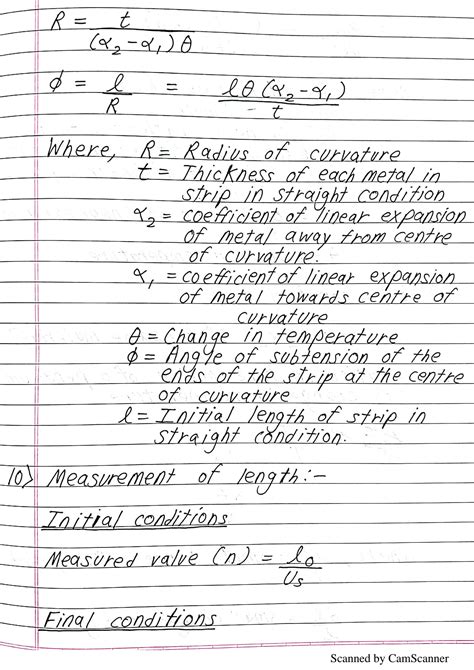 R = t / (α₂-α₁)θ
ϕ = l/R = lθ(α₂-α₁) / t
Where, R = Radius of curvature
t = Thickness of each metal in
strip in straight condition
α₂ = coefficient of linear expansion
of metal away from centre
of curvature.
α₁ = coefficient of linear expansion
of metal towards centre of
curvature
θ = Change in temperature
ϕ = Angle of subtension of the
ends of the strip at the centre
of curvature
l = Initial length of strip in
straight condition.
10) Measurement of length:-
Initial conditions
Measured value (n) = l₀/Us
Final conditions
Scanned by CamScanner